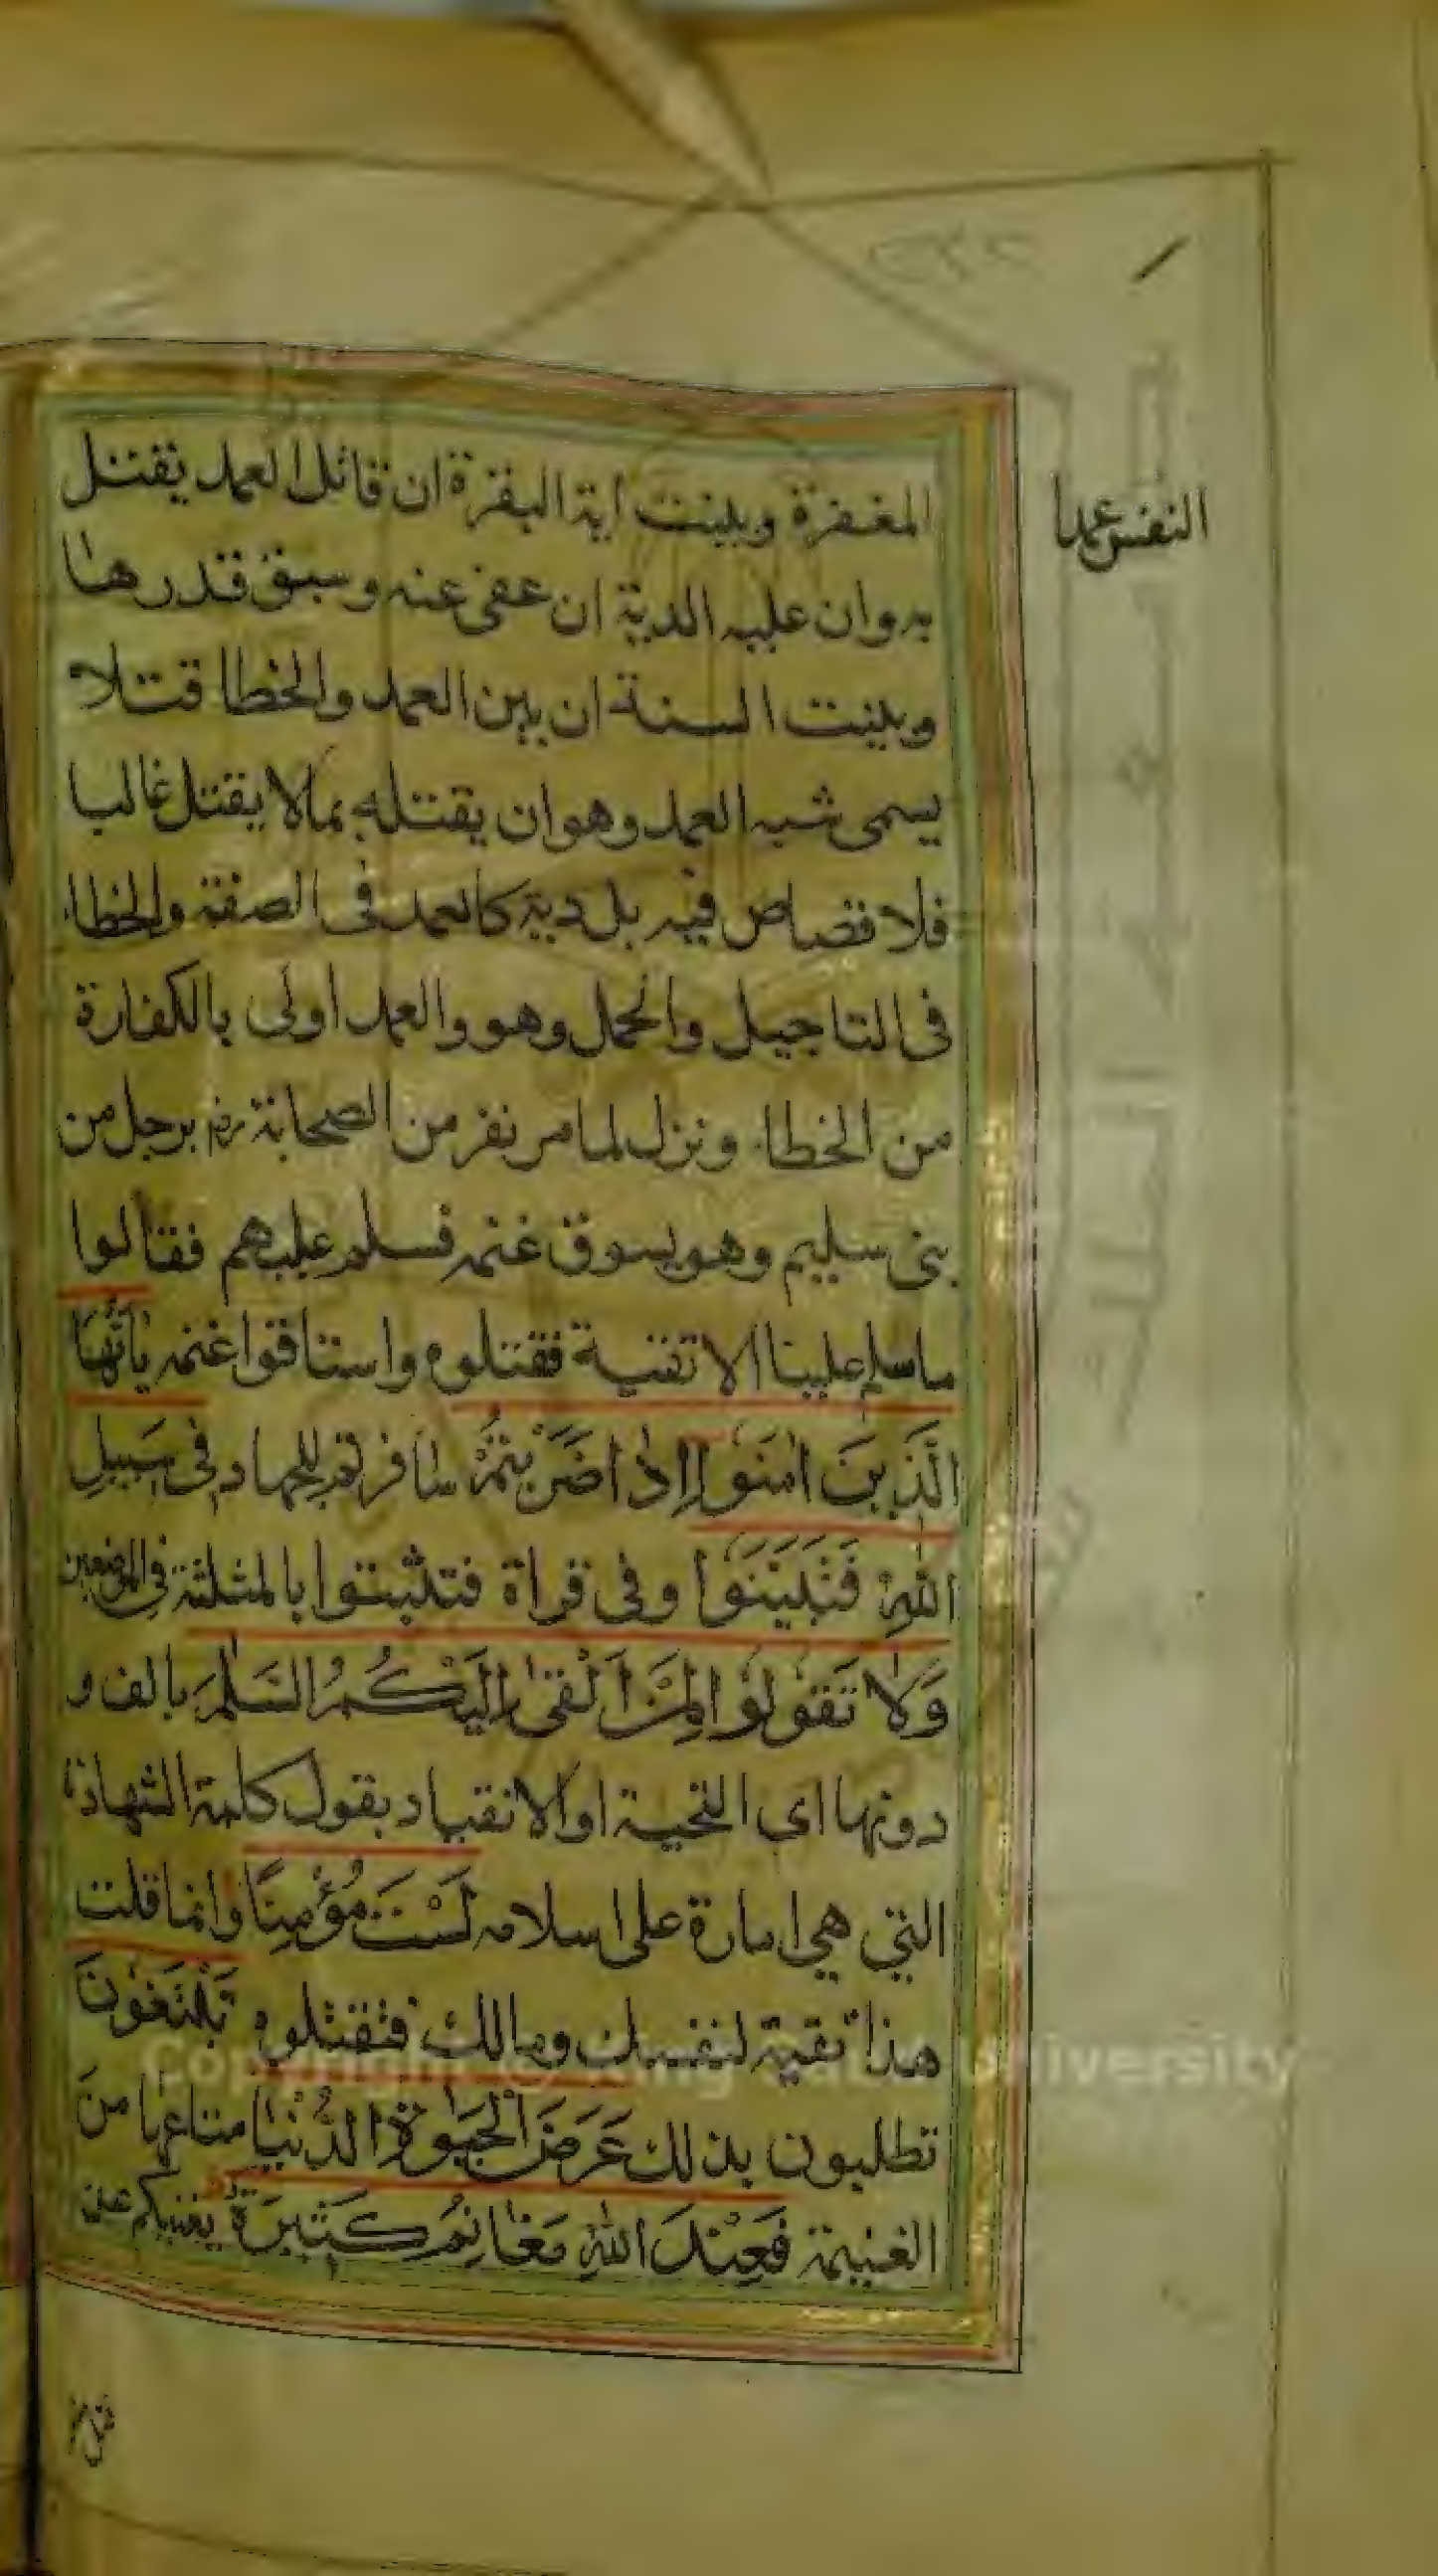 النفس عمدا
المغفرة وبينت اية البقرة ان قاتل العمد يقتل
به وان عليه الدية ان عفى عنه وسبق قدرها
وبينت السنة ان بين العمد والخطا قتلا
يسمى شبه العمد وهو ان يقتله بمالا يقتل غالبا
فلا قصاص فيه بل دية كالعمد فى الصفة والخطاء
فى التاجيل والحمل وهو والعمد اولى بالكفارة
من الخطاء ونزل لما مر نفر من الصحابة رض برجل من
بنى سليم وهو يسوق غنمه فسلم عليهم فقالوا
ماسلم علينا الا تقية فقتلوه واستاقوا غنمه يٰاَيُّهَا
الَّذِينَ اٰمَنُوا اِذَا ضَرَبْتُمْ سافرتم للجهاد فِى سَبِيلِ
اللّٰهِ فَتَبَيَّنُوا وفى قراة فتثبتوا بالمثلثة فى الموضعين
وَلَا تَقُولُوا لِمَنْ اَلْقٰى اِلَيْكُمُ السَّلٰمَ بالف و
دونها اى التحية او الانقياد بقول كلمة الشهادة
التي هي امارة على اسلامه لَسْتَ مُؤْمِنًا وانما قلت
هذا تقية لنفسك ومالك فتقتلوه تَبْتَغُونَ
تطلبون بذلك عَرَضَ الْحَيٰوةِ الدُّنْيَا متاعها من
الغنيمة فَعِنْدَ اللّٰهِ مَغَانِمُ كَثِيرَةٌ يغنيكم عن
Copyright © King Saud University